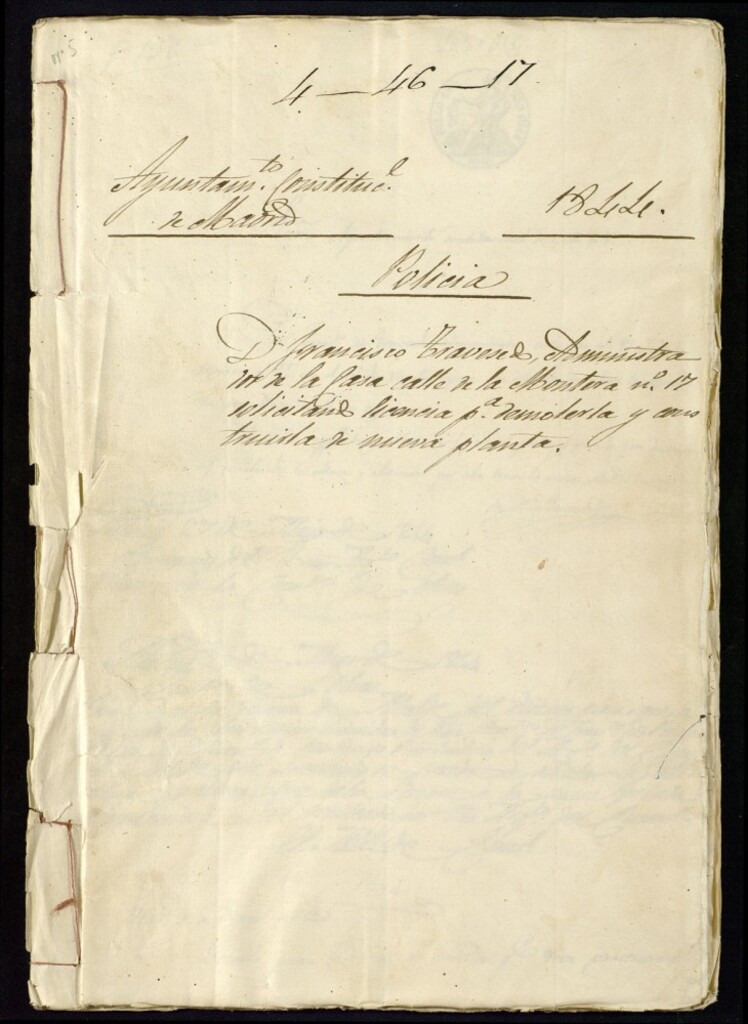 nº 5
4 — 46 — 17
Ayuntam.to Constituc.l
de Madrid
1844.
Policia
D. Francisco Travesedo, Administra
dor de la Casa calle de la Montera nº. 17
solicitando licencia p.a demolerla y cons
truirla de nueva planta.